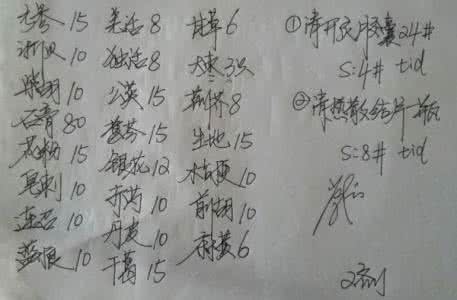 羌活 8
甘草 6
独活 8
大枣 3只
柴胡 10
公英 15
荆芥 8
石膏 80
黄芩 15
生地 15
花粉 15
银花 12
桔梗 10
皂刺 10
赤芍 10
前胡 10
连召 10
丹皮 10
麻黄 6
蓝根 10
干葛 15
①清开灵胶囊 24#
S:4# tid
②清热散结片一瓶
S:8# tid
2剂